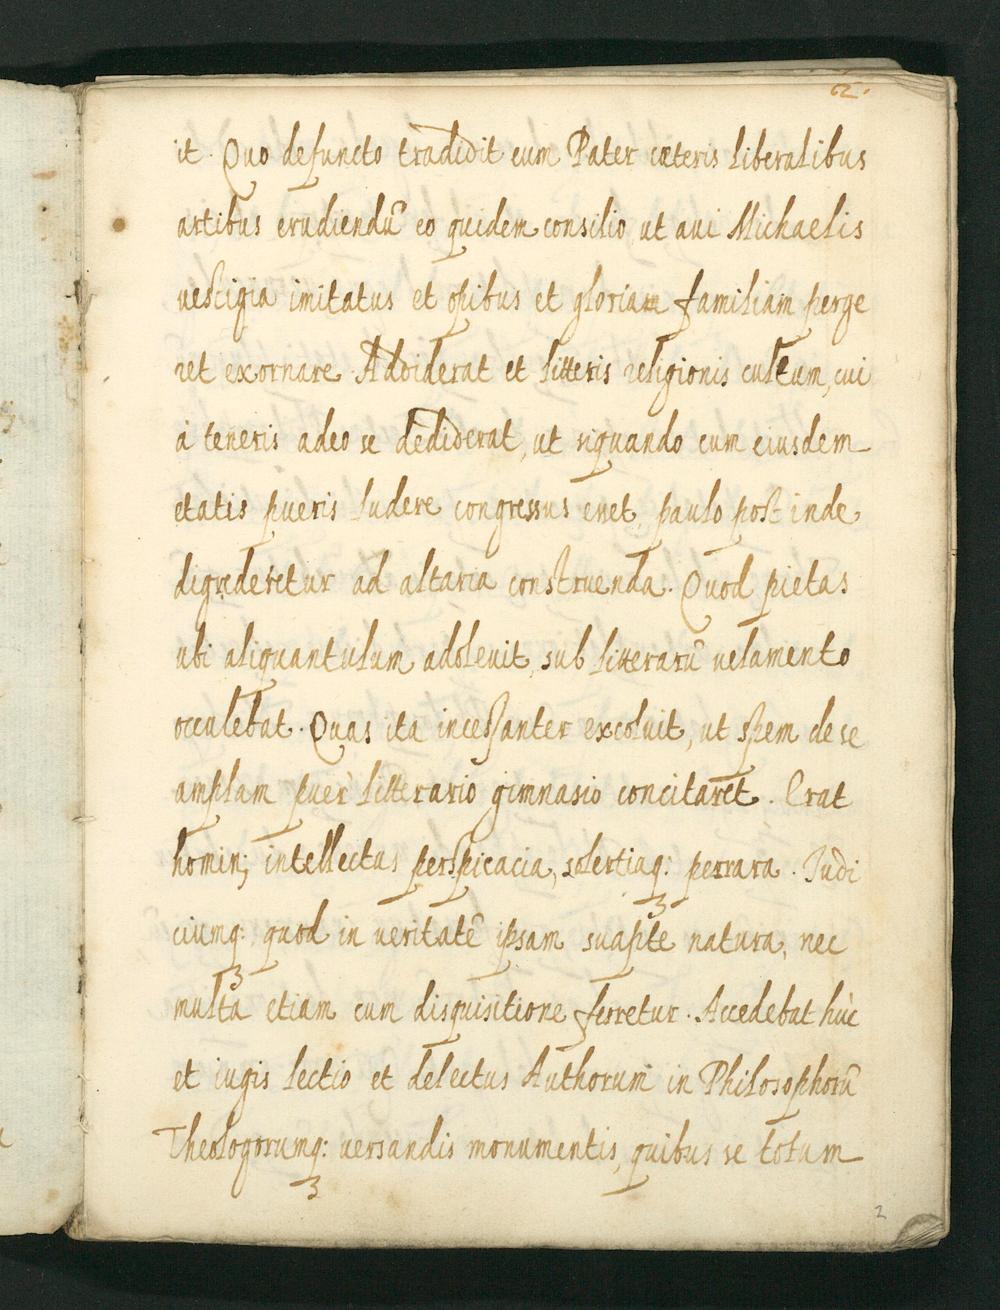 62.
it. Quo defuncto tradidit eum Pater cæteris liberalibus
artibus erudiendũ eo quidem consilio, ut aui Michaelis
uestigia imitatus et opibus et gloria familiam perge
ret exornare. Addiderat et litteris religionis cultum, cui
à teneris adeo se dediderat, ut siquando cum eiusdem
etatis pueris ludere congressus esset, paulo post inde
digrederetur ad altaria construenda. Quod pietas
ubi aliquantulum adoleuit, sub litterarũ uelamento
occulebat. Quas ita incessanter excoluit, ut spem de se
amplam puer litterario gimnasio concitaret. Erat
homini intellectus perspicacia, solertiaq: perrara. Iudi
ciumq: quod in ueritatẽ ipsam suapte natura, nec
multa etiam cum disquisitione ferretur. Accedebat hùc
et iugis lectio et delectus Authorum in Philosophorũ
Theologorumq: uersandis monumentis, quibus se totum
2